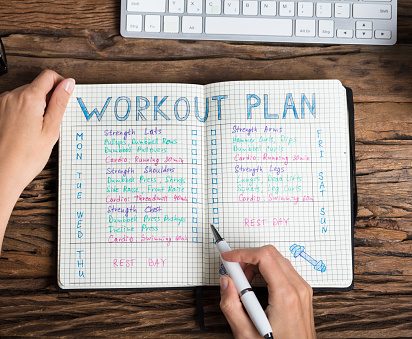 WORKOUT PLAN
MON
TUE
WED
THU
Strength Lats
Pulleys, Dumbbell Rows
Dumbbell Pullovers
Cardio: Running 30min
Strength Shoulders
Dumbbell Press, Shrugs
Side Raise, Front Raise
Cardio: Treadmill
Strength Chest
Dumbbell Press
Incline Press
Cardio: Swimming
REST DAY
FRI
SAT
SUN
Strength Arms
Hammer Curls, Dips
Dumbbell
Cardio: Running
Strength Legs
Lunges
Squats, Leg Curls
Cardio: Swimming
REST DAY